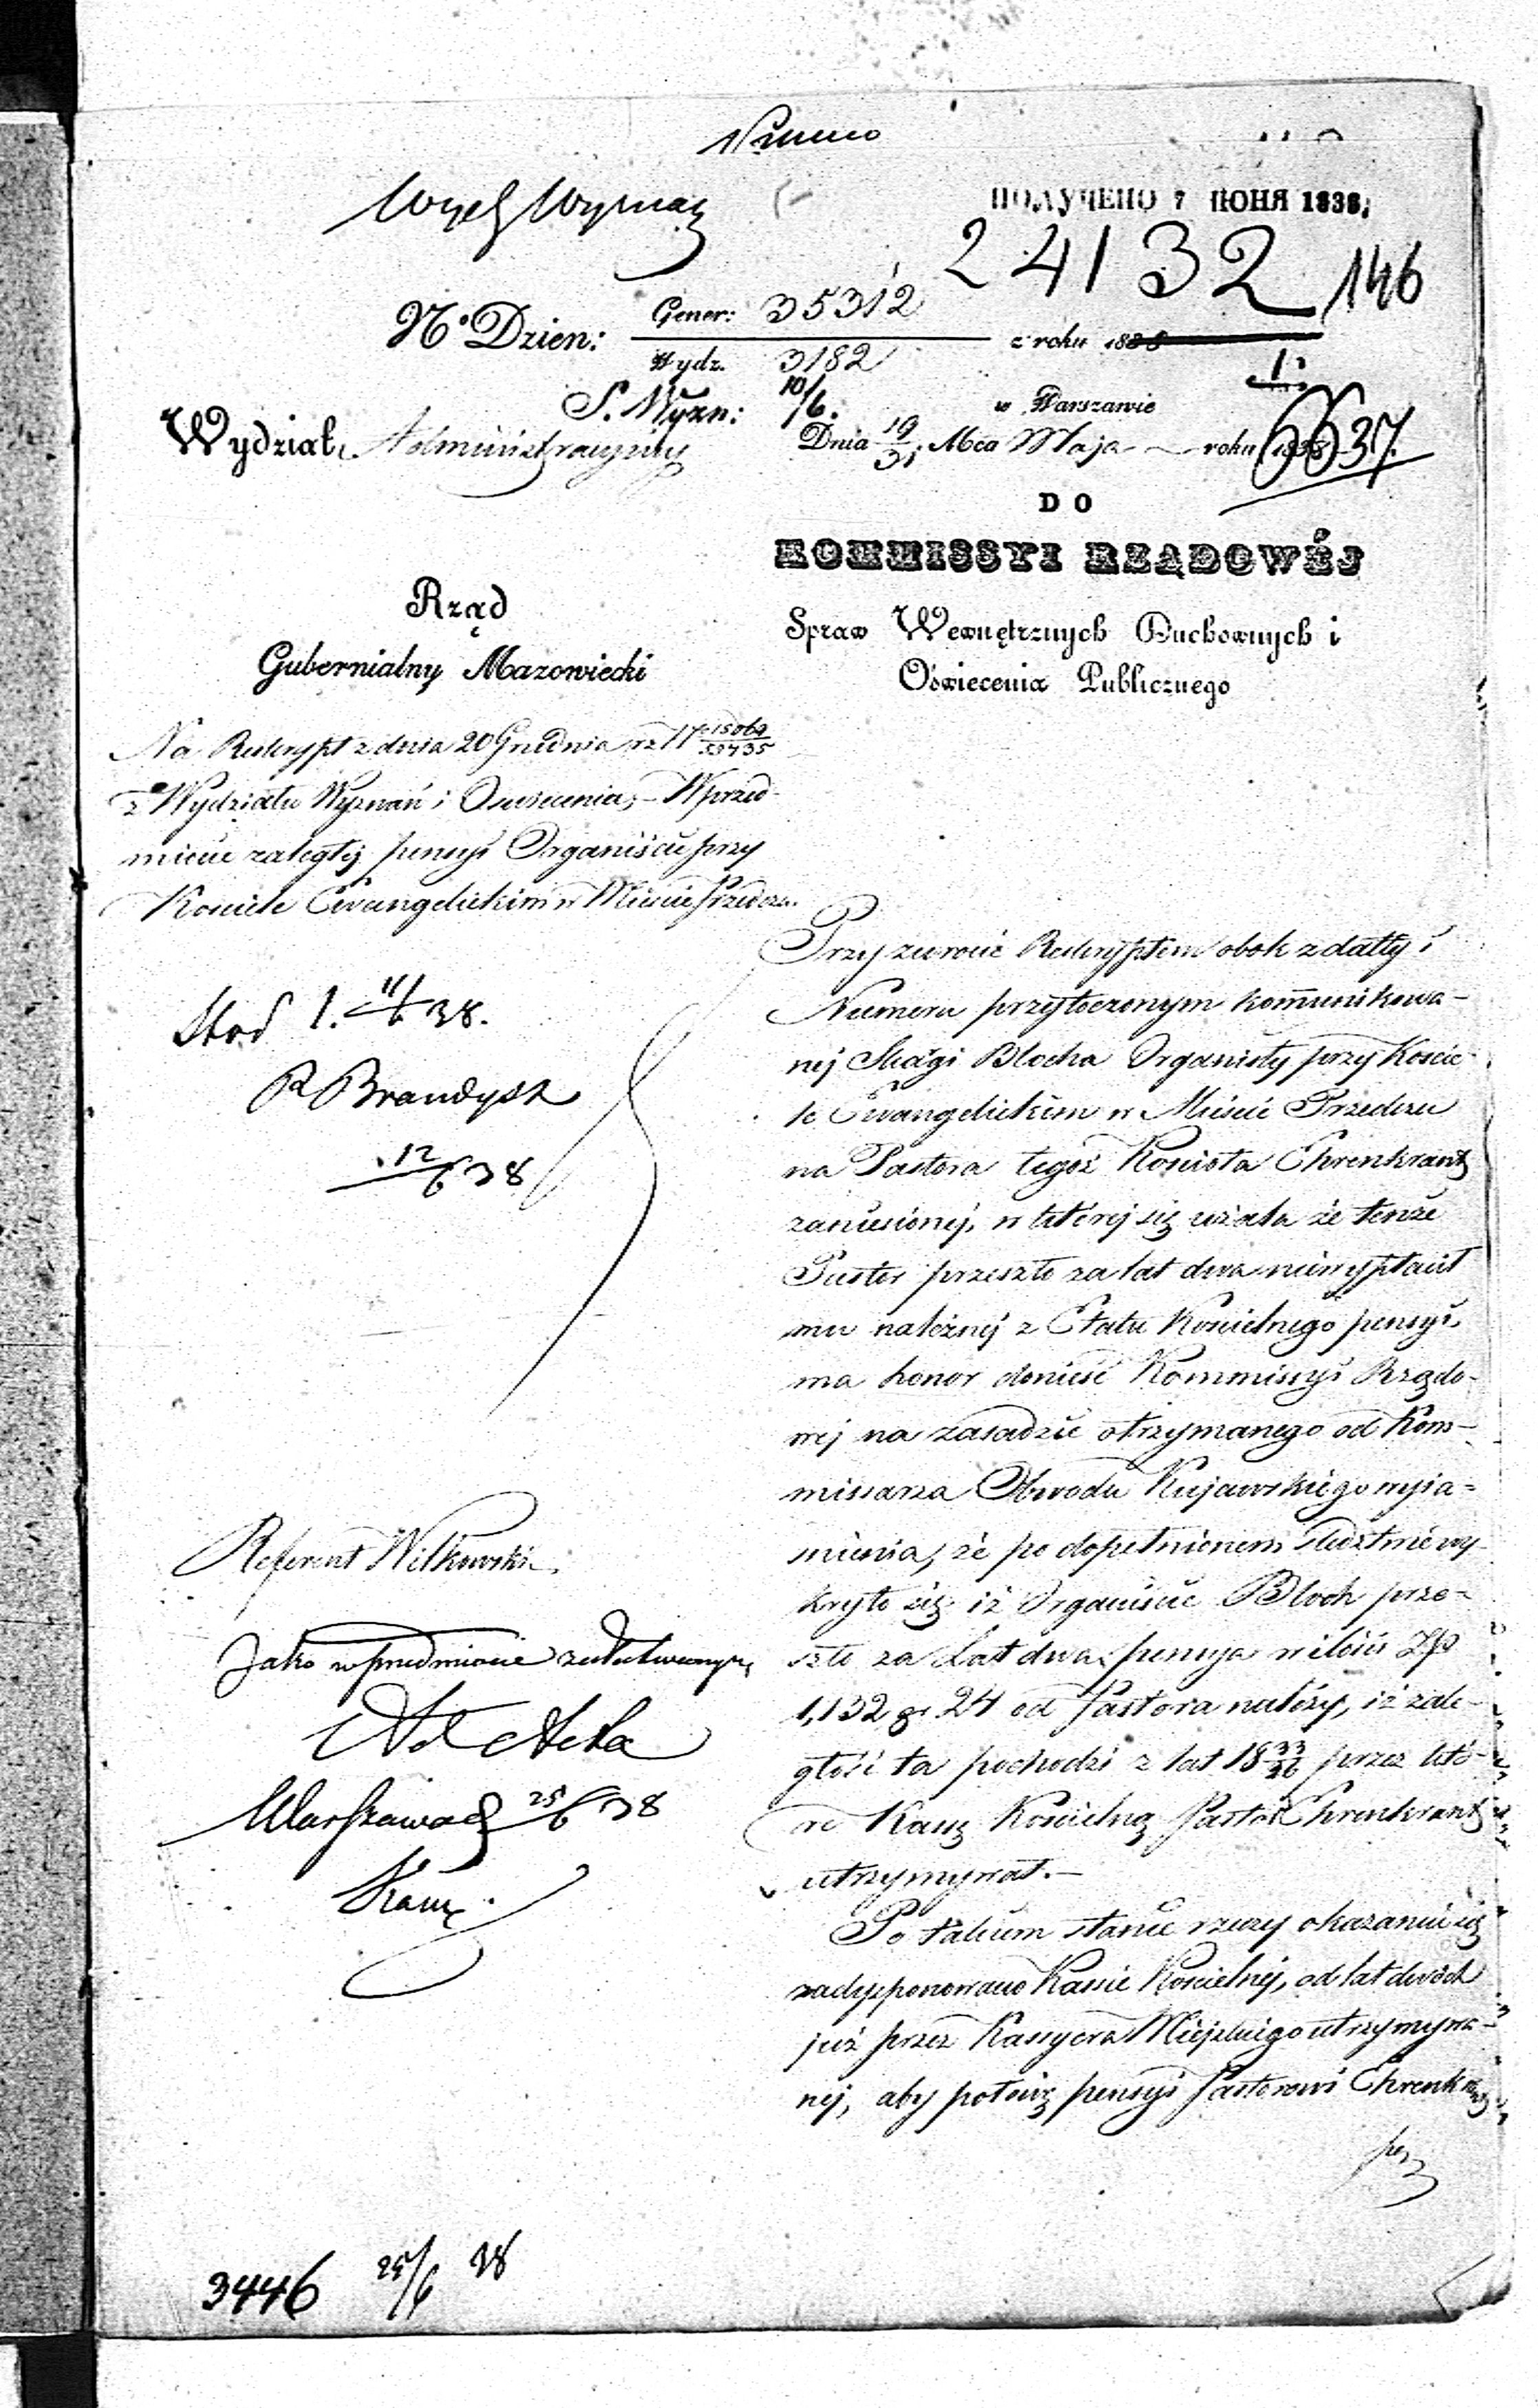 ПОЛУЧЕНО 7 ІЮНЯ 1838.
24132
146
Nº Dzien: Gener: 35312
Wydz. 3182
z roku 1838
S. Wyzn: 10/6.
w Warszawie
Wydział Administracyjny
Dnia 19/31 Mca Maja roku 1838
5537.
DO
KOMMISSYI RZĄDOWÉJ
Spraw Wewnętrznych Duchownych i
Oświecenia Publicznego
Rząd
Gubernialny Mazowiecki
Na Reskrypt z dnia 20 Grudnia rz Nº 15069/
z Wydziału Wyznań i Oswiecenia, – W przed-
miocie zaległéj pensyi Organiście przy
Kosciele Ewangelickim w Mieście Przedczu.
11/6 38.
R Brandysz
12/6 38
Referent Wilkowski
Jako w przedmiocie załatwionym
Ad Acta
Warszawa d 25/6 38
3446 25/6 38
Przy zwrocie Reskryptem obok z datty i
Numeru przytoczonym kommunikowa-
néj Skargi Blocha Organisty przy Koscie-
le Ewangelickim w Mieście Przedczu
na Pastora tegoż Kościoła Ehrenkrantz
zaniesionéj, w któréj się użala że tenże
Pastor przeszło za lat dwa niewypłacił
mu należnéj z Etatu Kościelnego pensyi,
ma honor donieść Kommissyi Rządo-
wéj na zasadzie otrzymanego od Kom-
missarza Obwodu Kujawskiego wyja-
śnienia, że po dopełnionem śledztwie wy-
kryło się iż Organiście Bloch prze-
szło za Lat dwa pensyja w ilości Zp
1,132 gr 24 od Pastora należy, iż zale-
głość ta pochodzi z lat 1833/36 przez któ-
re Kassę Kościelną Pastor Ehrenkrantz
utrzymywał.–
Po takiem stanie rzeczy okazaniu się
zadysponowano Kassie Kościelnéj, od lat dwóch
już przez Kassyera Miejskiego utrzymywa-
néj, aby połowę pensyi Pastorowi Ehrenkrantz